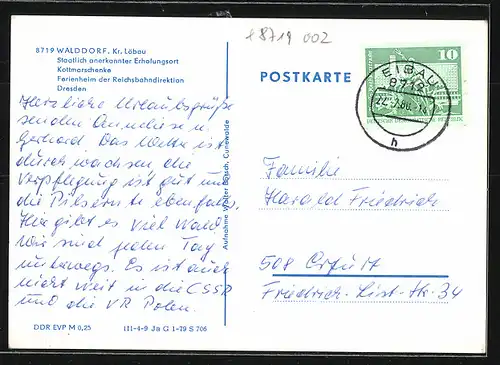 +8719 002
8719 WALDDORF, Kr. Löbau
Staatlich anerkannter Erholungsort
Kottmarschenke
Ferienheim der Reichsbahndirektion
Dresden
Herzliche Urlaubsgrüße
senden Anneliese u.
Gerhard. Das Wetter ist
durchwachsen die
Verpflegung ist gut und
die Pilzernte ebenfalls.
Hier gibt es viel Wald
wir sind jeden Tag
unterwegs. Es ist auch
nicht weit in die CSSR
und die VR Polen.
DDR EVP M 0,25
III-4-9 Ja G 1-79 S 706
Aufnahme Walter Bätsch, Cunewalde
POSTKARTE
10
DEUTSCHE DEMOKRATISCHE REPUBLIK
EIBAU
8712
h
Familie
Harald Friedrich
508 Erfurt
Friedrich-List-Str. 34